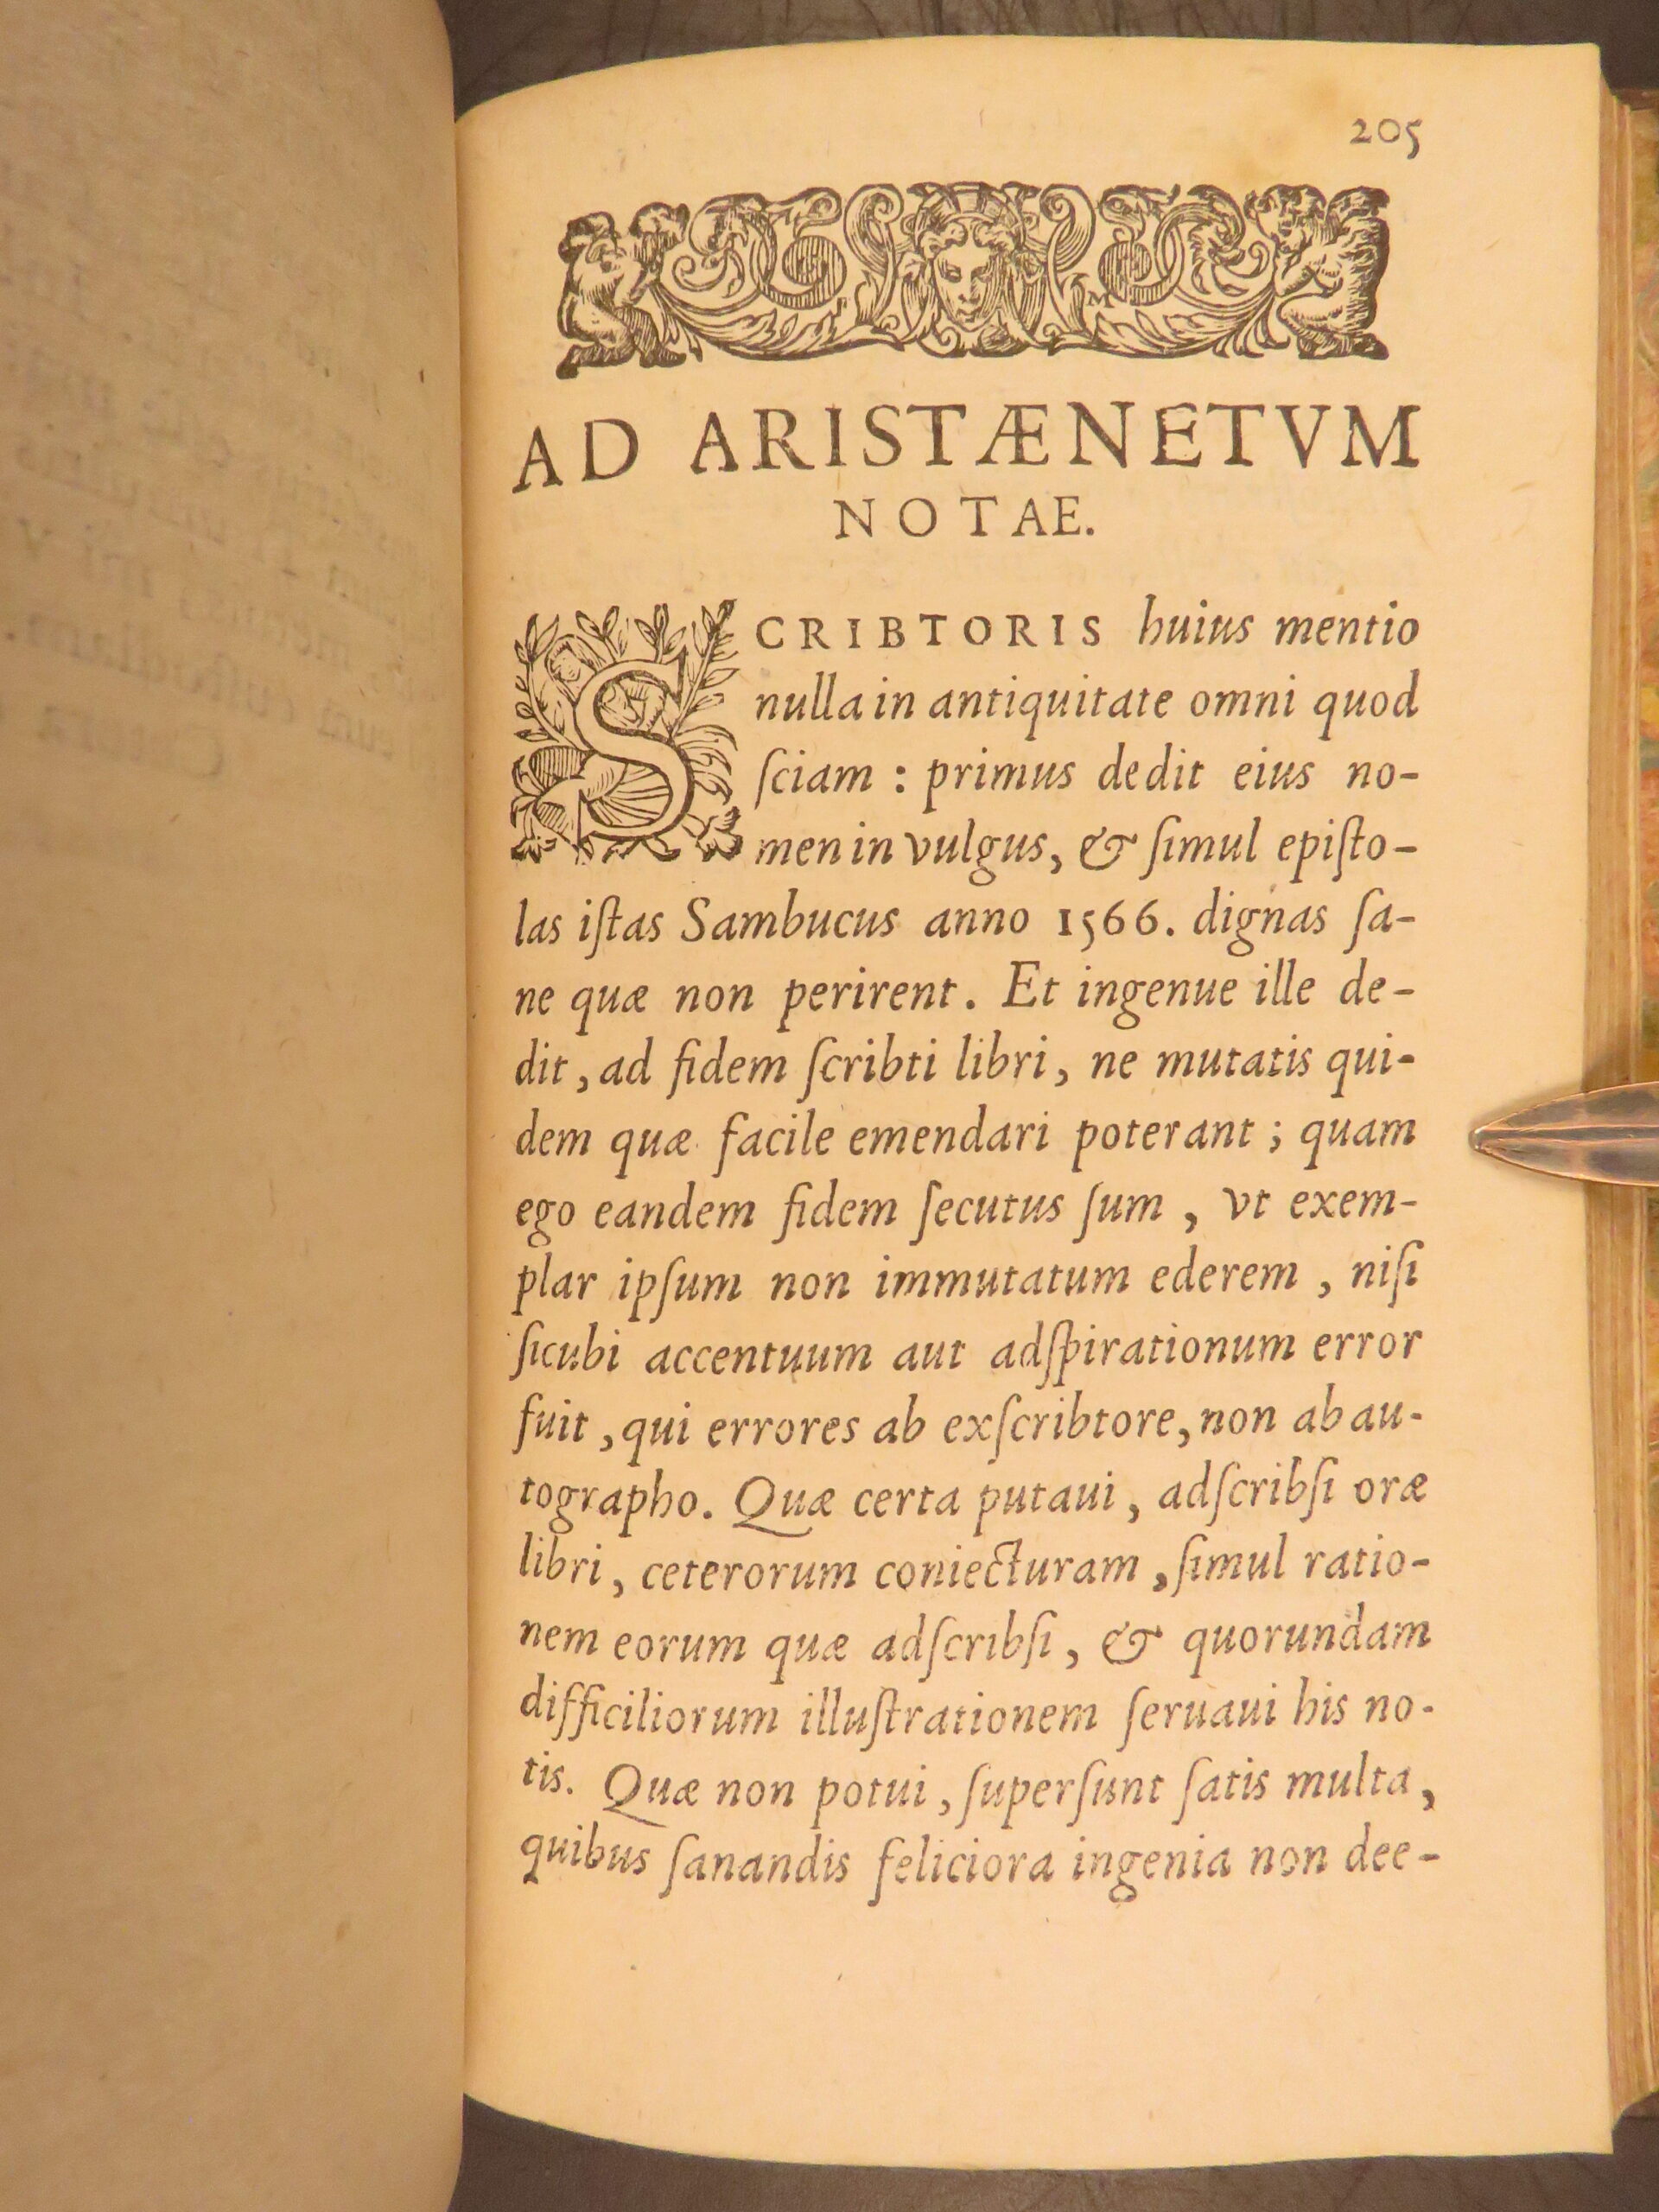 205
AD ARISTÆNETVM
NOTAE.
SCRIBTORIS huius mentio
nulla in antiquitate omni quod
ſciam : primus dedit eius no-
men in vulgus, & ſimul epiſto-
las iſtas Sambucus anno 1566. dignas ſa-
ne quæ non perirent. Et ingenue ille de-
dit, ad fidem ſcribti libri, ne mutatis qui-
dem quæ facile emendari poterant ; quam
ego eandem fidem ſecutus ſum , vt exem-
plar ipſum non immutatum ederem , niſi
ſicubi accentuum aut adſpirationum error
fuit , qui errores ab exſcribtore, non ab au-
tographo. Quæ certa putaui , adſcribſi oræ
libri , ceterorum coniecturam , ſimul ratio-
nem eorum quæ adſcribſi , & quorundam
difficiliorum illuſtrationem ſeruaui his no-
tis. Quæ non potui , ſuperſunt ſatis multa ,
quibus ſanandis feliciora ingenia non dee-